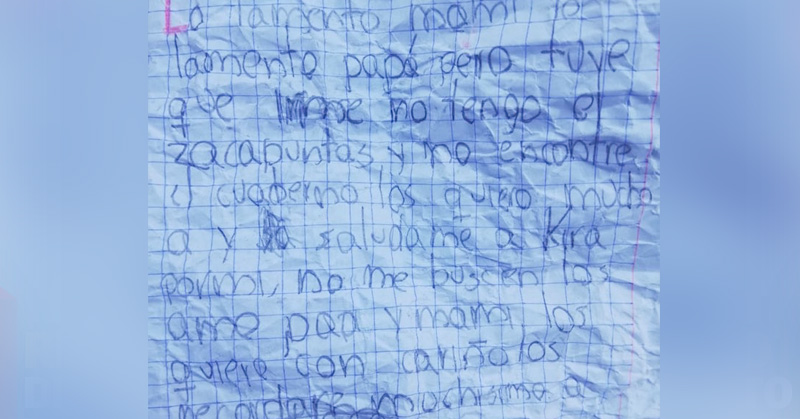 Lo lamento mami lo
lamento papá pero tuve
que irme no tengo el
zacapuntas y no encontre
el cuaderno los quiero mucho
a y saludame a Kira
pormi, no me buscen los
amo papa y mami los
quiere con cariño los
muchisimo a